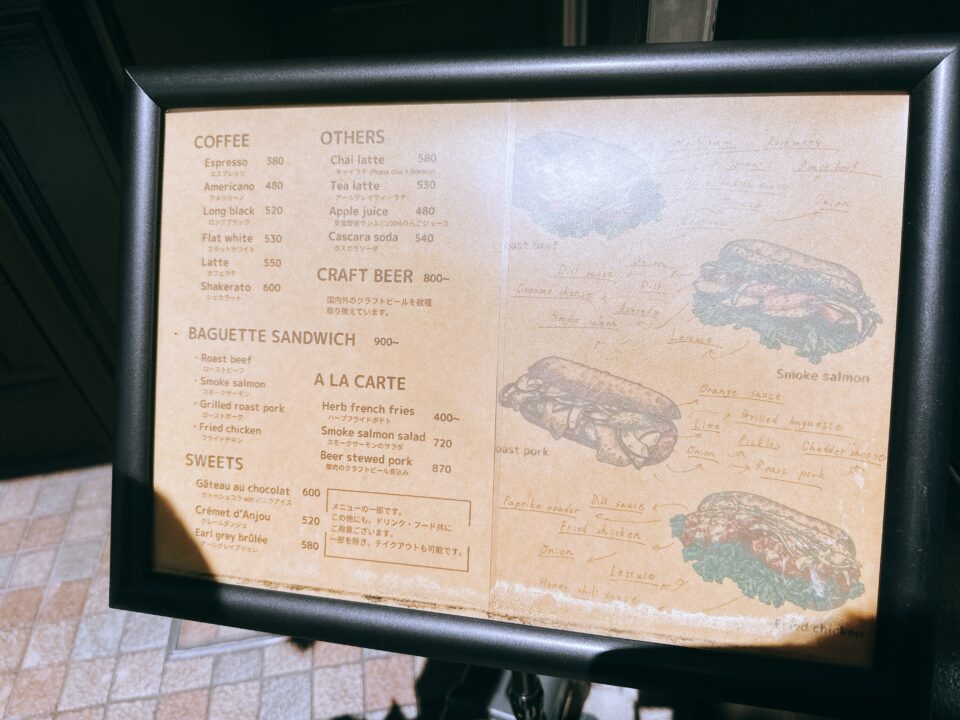 COFFEE
Espresso 380
エスプレッソ
Americano 480
アメリカーノ
Long black 520
ロングブラック
Flat white 530
フラットホワイト
Latte 550
カフェラテ
Shakerato 600
シェカラート
OTHERS
Chai latte 580
チャイラテ
Tea latte 530
アールグレイティーラテ
Apple juice 480
Cascara soda 540
カスカラソーダ
CRAFT BEER 800~
国内外のクラフトビールを数種
取り揃えています。
BAGUETTE SANDWICH 900~
・Roast beef
ローストビーフ
・Smoke salmon
スモークサーモン
・Grilled roast pork
ローストポーク
・Fried chicken
フライドチキン
A LA CARTE
Herb french fries 400~
ハーブフライドポテト
Smoke salmon salad 720
スモークサーモンのサラダ
Beer stewed pork 870
豚肉のクラフトビール煮込み
SWEETS
Gâteau au chocolat 600
ガトーショコラ with バニラアイス
Crémet d'Anjou 520
クレームダンジュ
Earl grey brûlée 580
アールグレイブリュレ
メニューの一部です。
この他にも、ドリンク・フード共に
ご用意ございます。
一部を除き、テイクアウトも可能です。
Mushroom
Rosemary
Roast beef
Onion
oast beef
Onion
Dill sauce
Dill
Creame cheese
Avocado
Smoke salmon
Lettuce
Smoke salmon
Orange sauce
Lime
Grilled baguette
Onion
Pickles
Chedder cheese
Roast pork
oast pork
Paprika powder
Dill sauce
Fried chicken
Onion
Lettuce
Honey chili sauce
Fried chicken